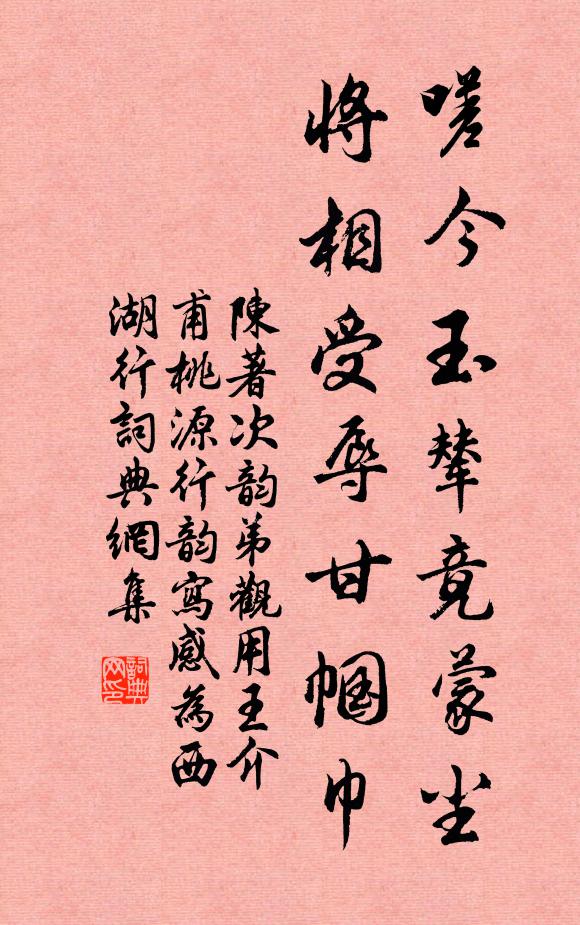 嗟今玉輦竟蒙尘
將相受辱甘幗巾
陳著次韵弟觀用王介
甫桃源行韵寫感為西
湖行詞典網集
詞典网印